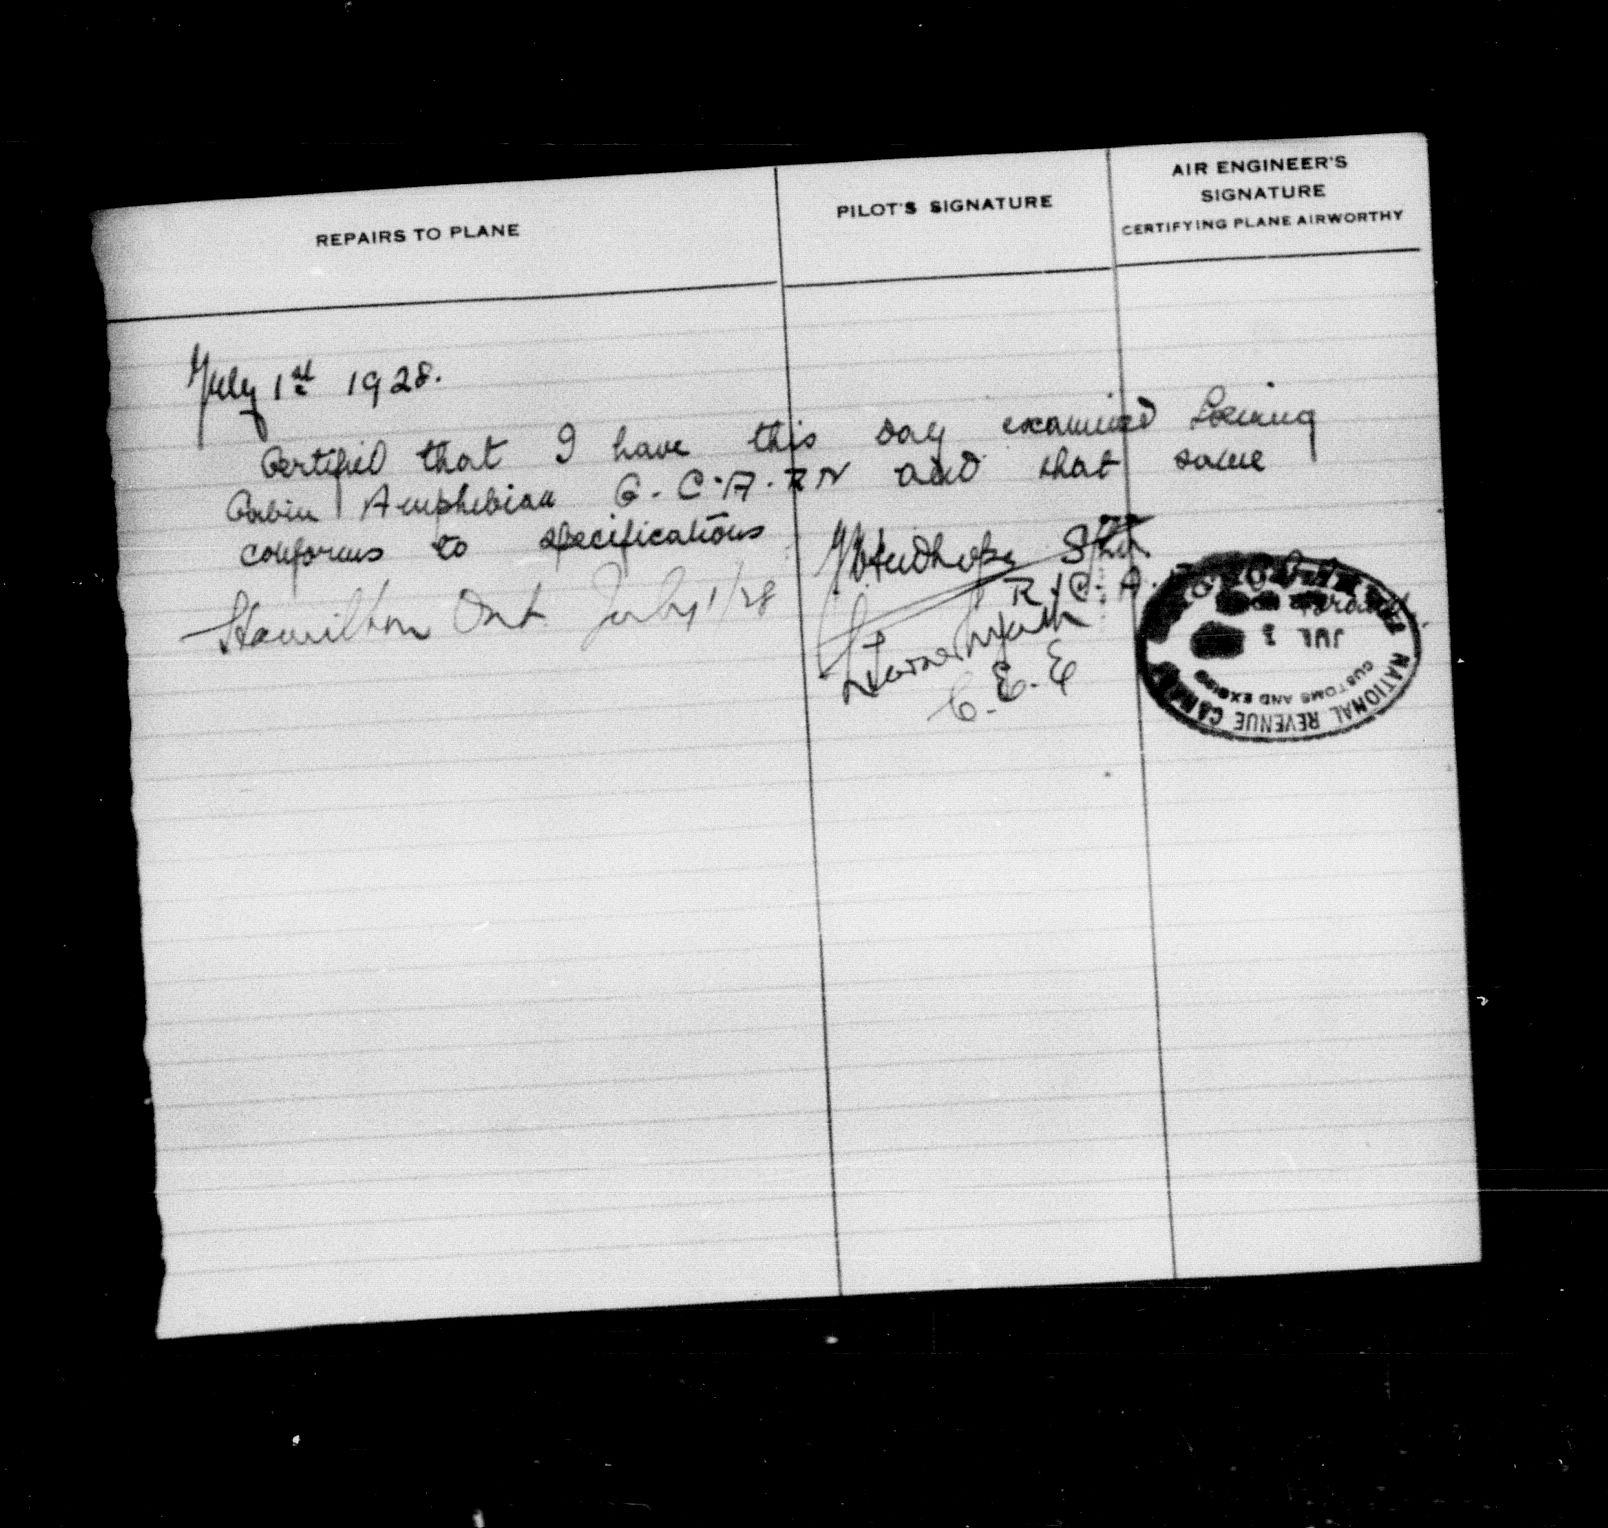 REPAIRS TO PLANE
PILOT'S SIGNATURE
AIR ENGINEER'S
SIGNATURE
CERTIFYING PLANE AIRWORTHY
July 1st 1928.
Certified that I have this day examined Loening
Cabin Amphibian G.C.A.RN and that same
conforms to specifications
R.C.A.
Hamilton Ont July 1/28
C.E.E
JUL
CUSTOMS AND EXCISE
NATIONAL REVENUE CANADA